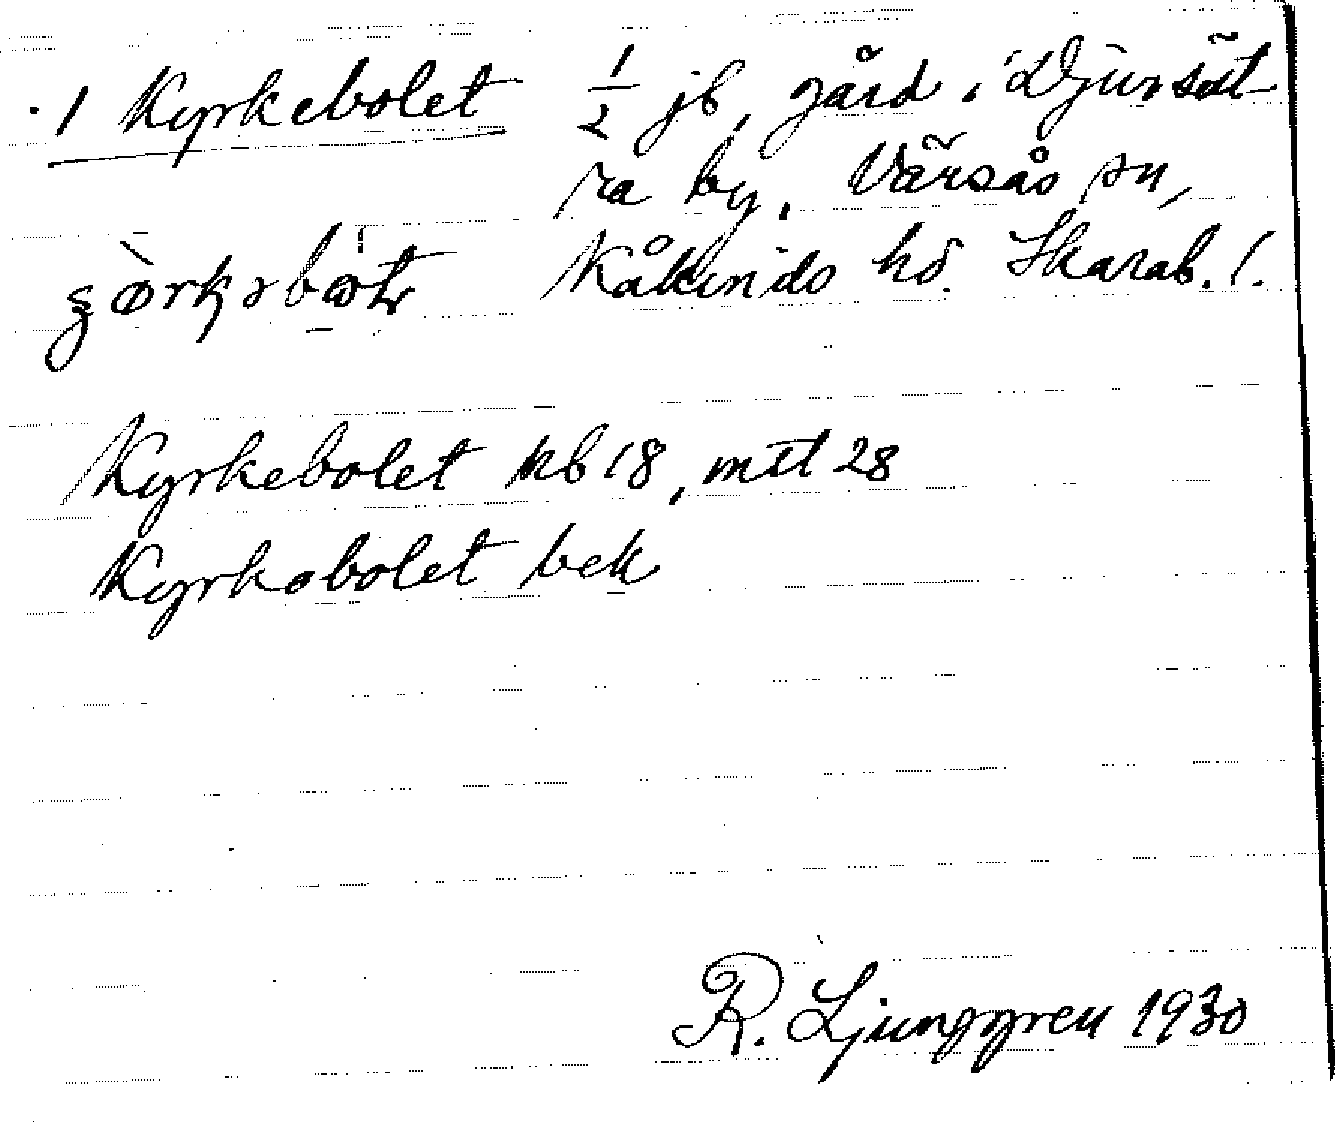 1 Kyrkebolet ½ jb, gård i Djursät-
ra by, Värsås sn,
Kåkinds hd. Skarab. l.
Kyrkebolet kb 18, mtl 28
Kyrkobolet bek
R. Ljunggren 1930